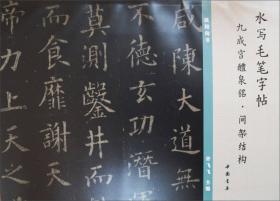 水写毛笔字帖
九成宫醴泉銘·间架结构
中国书店
咸陳大道無
不德玄功潛
莫測鑿井而
而食靡謝天
力上天之